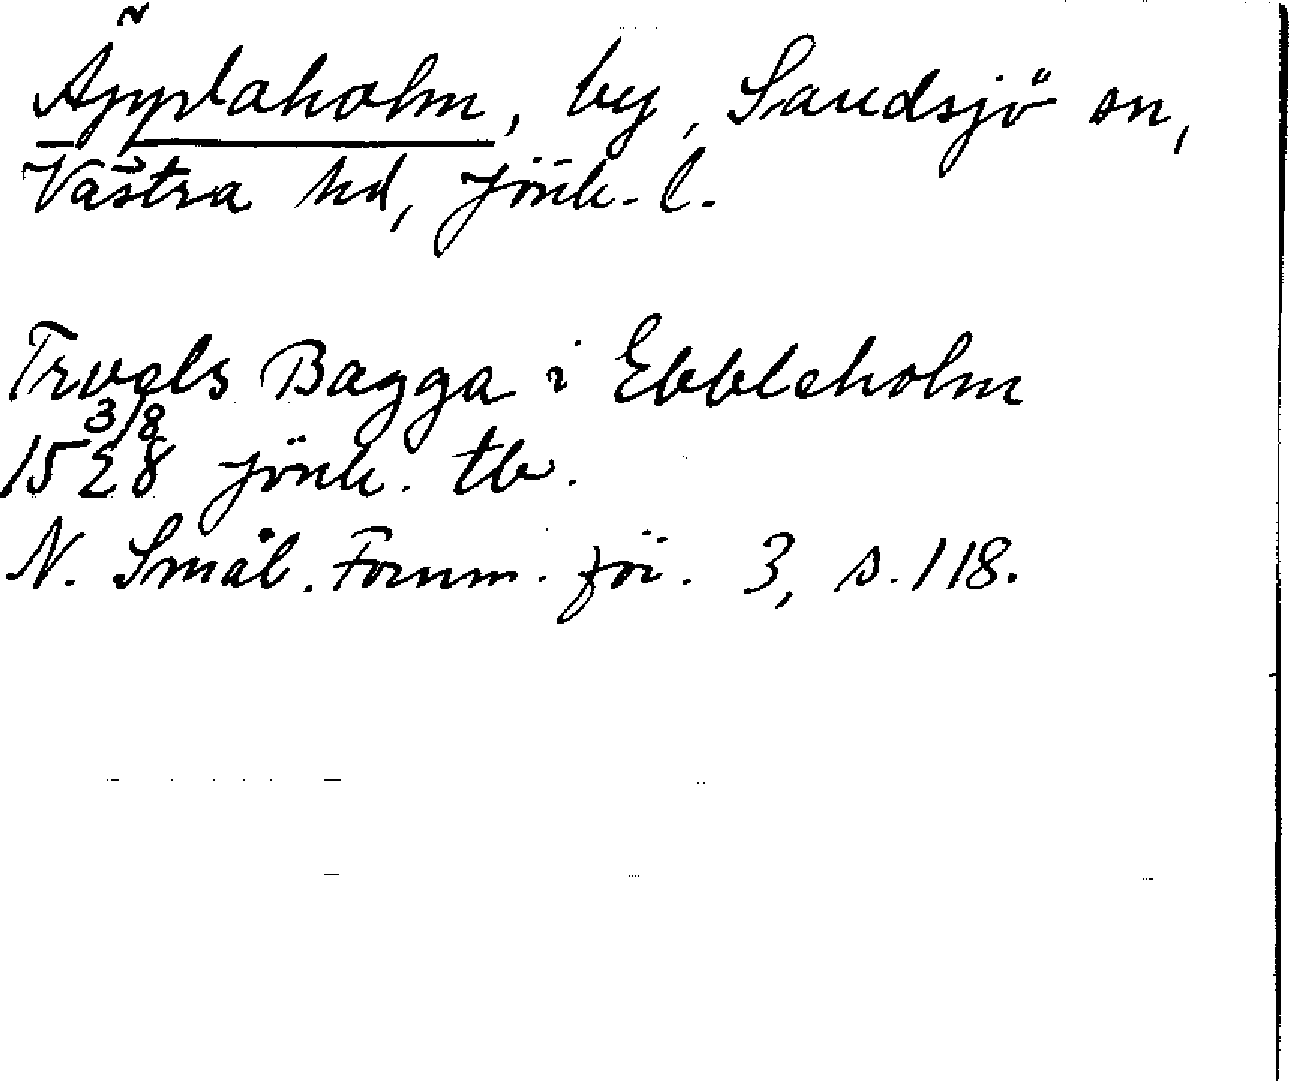 Äpplaholm, by, Sandsjö sn,
Västra hd, Jönk. l.
Truels Bagga i Ebbleholm
3/8
1528 Jönk. tb.
N. Smål. Fornm. för. 3, s. 118.